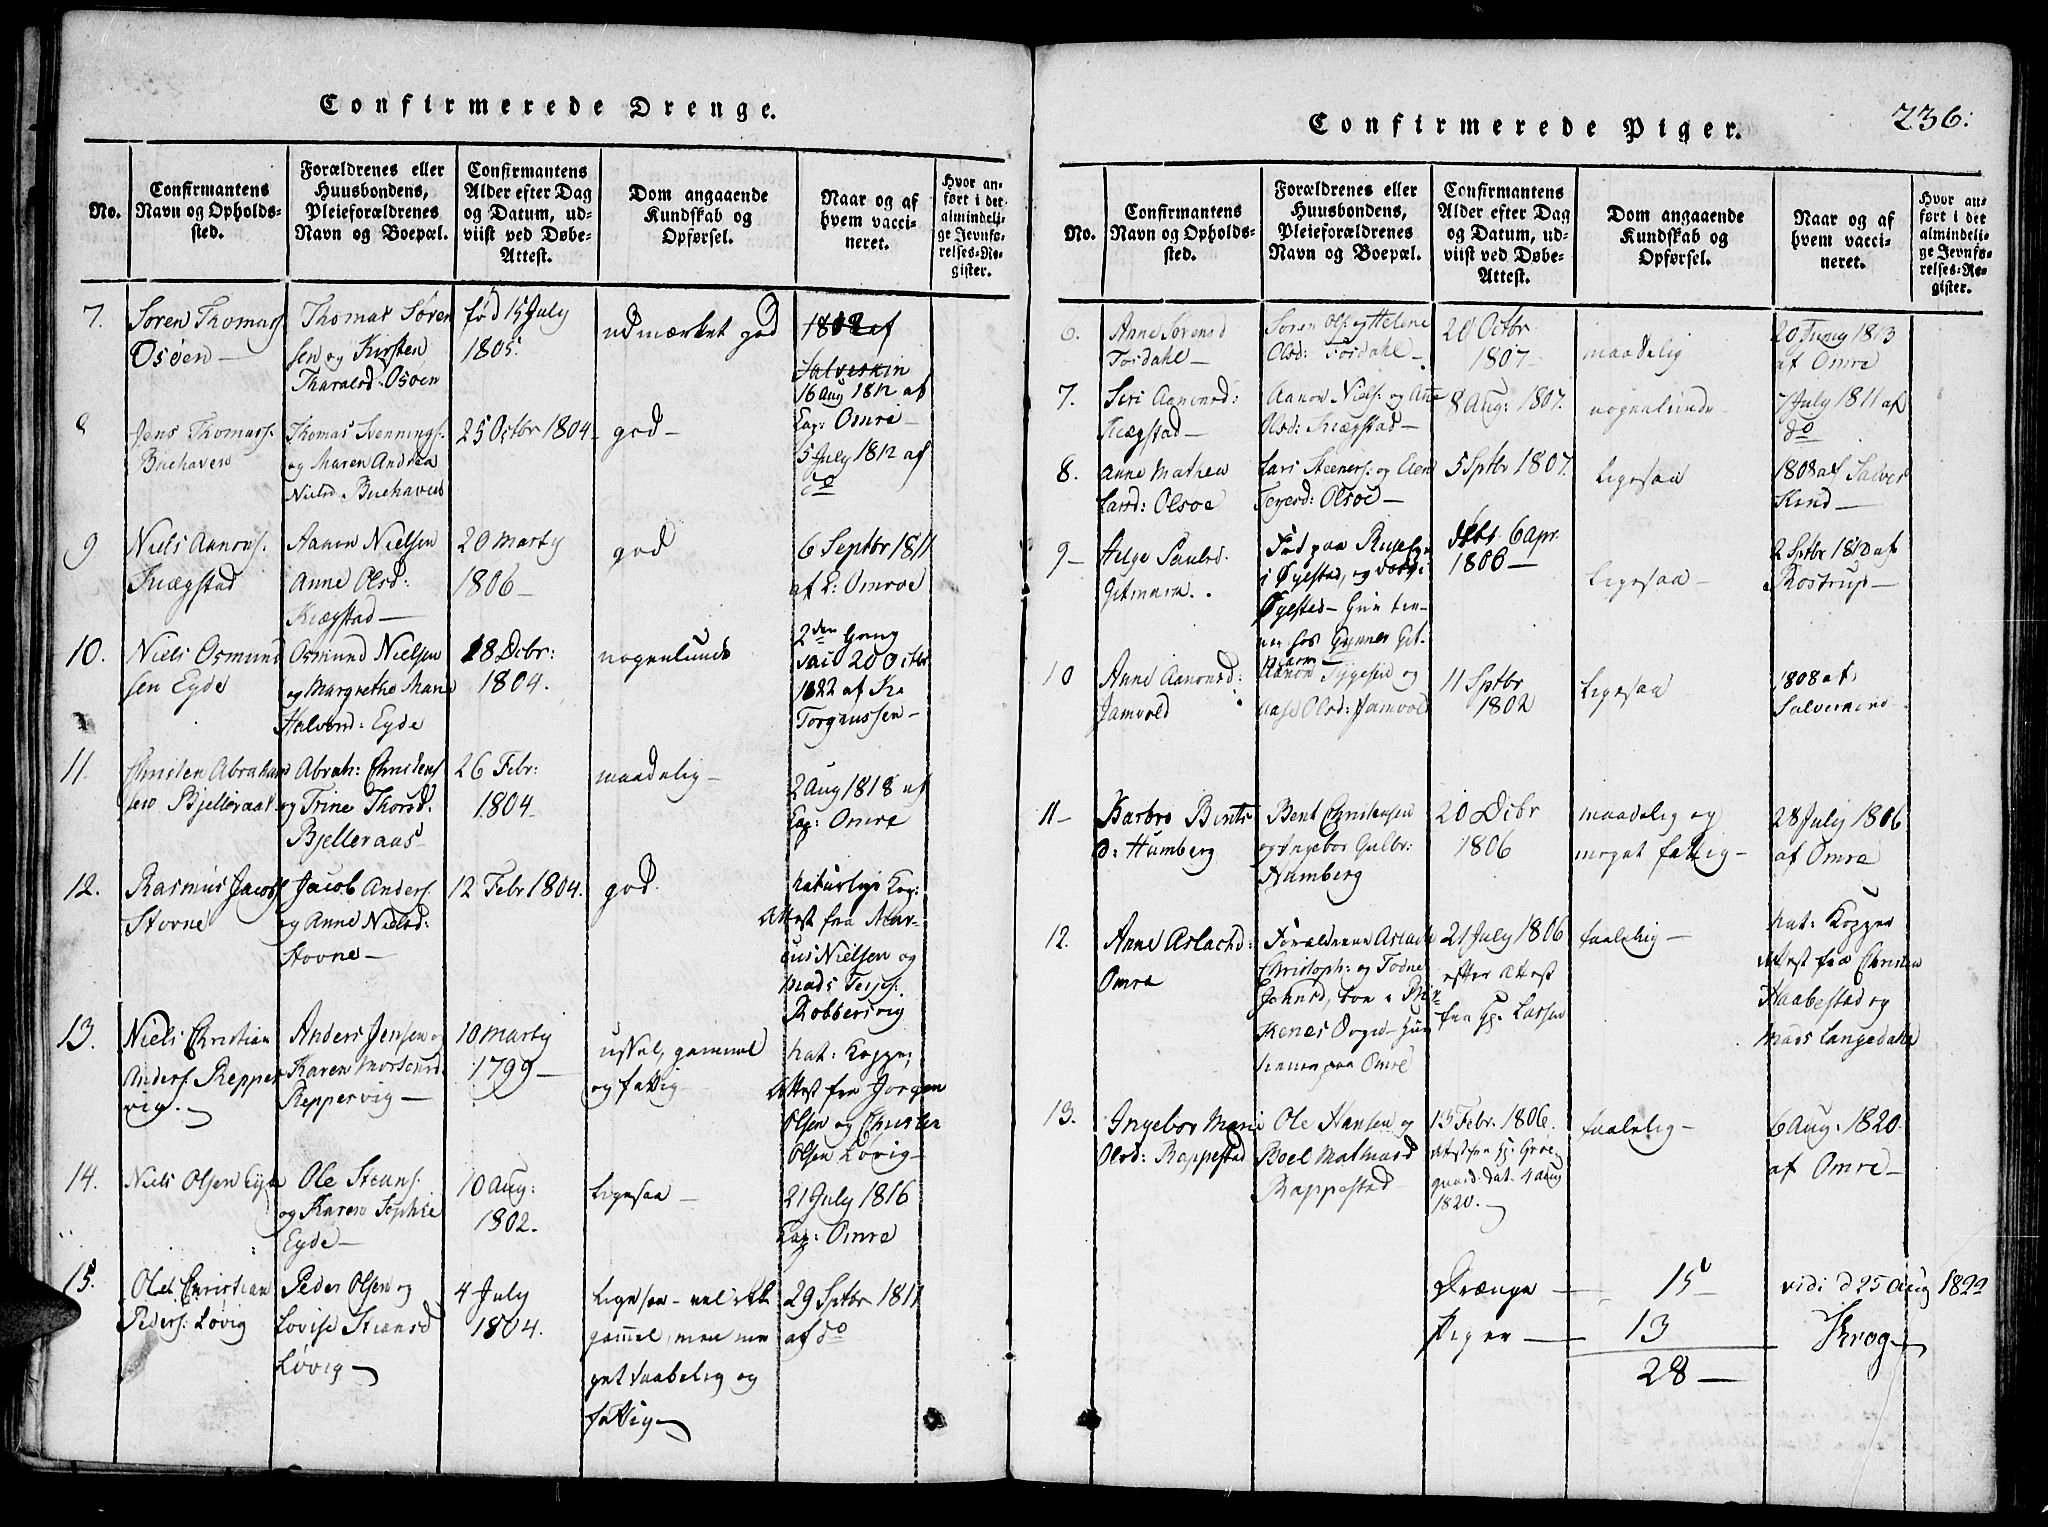 Confirmerede Drenge.
No.
Confirmantens
Navn og Opholds-
sted.
Forældrenes eller
Huusbondens,
Pleieforældrenes
Navn og Boepæl.
Confirmantens
Alder efter Dag
og Datum, ud-
viist ved Døbe-
Attest.
Dom angaaende
Kundskab og
Opførsel.
Naar og af
hvem vacci-
neret.
Hvor an-
ført i det
almindeli-
ge Jevnfø-
relses-Re-
gister.
7.
Søren Thomass
Osøen
Thomas Søren
sen og Kirsten
Tharalsd. Osøen
fød 15 July
1805.
udmærket god
1802 af
Salveskin
16 Aug 1812 af
Cap: Omre
8
Jens Thomass.
Buehaven
Thomas Svennings.
og Maren Andrea
Nielsd. Buehaven
25 Octbr 1804
god
5 July 1812 af
do
9
Niels Aanons.
Kiægstad
Aanon Nielsen
Anne Olsd:
Kiægstad
20 Marty
1806
god
6 Septbr 1811
af C: Omroe
10.
Niels Osmund
sen Eyde
Osmund Nielsen
og Margrethe Marie
Halvord: Eyde
28 Dcbr:
1804.
nogenlunde
2den Gang
vac 20 Octbr
1822 af
Torgiussen
11.
Christen Abraham
sen Bjelleraas
Abrah: Christens
og Trine Thorsd.
Bjelleraas
26 Febr:
1804
maadelig
2 Aug 1818 af
Cap: Omre
12.
Rasmus Jacobs
Stovne
Jacob Anders.
og Anne Nielsd:
Stovne
12 Febr 1804.
god.
naturlige Kop:
Attest fra Mar-
cus Nielsen og
Mads Terjes:
Robbersvig
13.
Niels Christian
Anders. Repper
vig.
Anders Jensen og
Karen
Reppervig
10 Marty
1799
ussel, gammel
og fattig
nat: Kopper,
Attest fra Jørgen
Olsen og Christen
Olsen Løvig
14.
Niels Olsen Eyde
Ole Steens.
og Karen Sophie
Eyde
10 Aug:
1802.
Ligesaa
21 July 1816
Cap: Omre
15.
Ole Christian
Peders: Løvig
Peder Olsen og
Lovise Steensd
Løvig
4 July
1804.
Ligesaa
gammel, men me
get svabelig og
fattig
29 Sptbr 1811
af do
Confirmerede Piger.
236:
No.
Confirmantens
Navn og Opholds-
sted.
Forældrenes eller
Huusbondens,
Pleieforældrenes
Navn og Boepæl.
Confirmantens
Alder efter Dag
og Datum, ud-
viist ved Døbe-
Attest.
Dom angaaende
Kundskab og
Opførsel.
Naar og af
hvem vacci-
neret.
Hvor an-
ført i det
almindeli-
ge Jevnfø-
relses-Re-
gister.
6.
Anne Sørensd
Tosdahl
Søren Ols. og Helene
Olsd: Tosdahl
20 Octbr
1807
maadelig
20 Juny 1813
af Omre
7.
Siri Aanonsd:
Kiægstad
Aanon Niels: og Ane
Olsd: Kiægstad
8 Aug: 1807.
nogenlunde
7 July 1811 af
do
8.
Anne Mathea
Larsd: Olsøe
Lars Steeners: og Elen
Terjesd: Olsøe
5 Sptbr 1807.
Ligesaa
1808 af Salves
Kind
9
Helge Paulsd.
Gitmarn.
Fød paa
i Øyestad, og
Øyestad Hun tie-
ner hos Gunner Git-
marn
6 Apr.
1806
Ligesaa
2 Sptbr 1810 af
Rostrup
10
Anne Aanonsd:
Jamvold
Aanon Tygesen og
Aase Olsd: Jamvold
11 Sptbr
1802
Ligesaa
1808 af
Salveskind
11
Barbro Bents
d: Humberg
Bent Christensen
og Ingebor Gulbr:
Humberg
20 Dcbr
1806
maadelig og
meget fattig
28 July 1806
af Omre
12.
Anne Aslachd:
Omre
Forældrene Aslach
Christoph: og Todne
Johnsd, boe i Bir-
kenes Sogn Hun
tiener paa Omre
21 July 1806
efter Attest
fra Hr. Lassen
taalelig
nat: Kopper
Attest fra Christen
Haabestad og
Mads Langedahl
13.
Ingebor Marie
Olsd: Rappestad
Ole Hansen og
Boel Mathiasd
Rappestad
13 Febr: 1806.
Attest fra Hr: Grøe-
gaard. dat. 4 Aug
1820.
taalelig
6 Aug: 1820
af Omre
Drænge 15
Piger 13
28
vidi d 25 Aug 1822
Krog